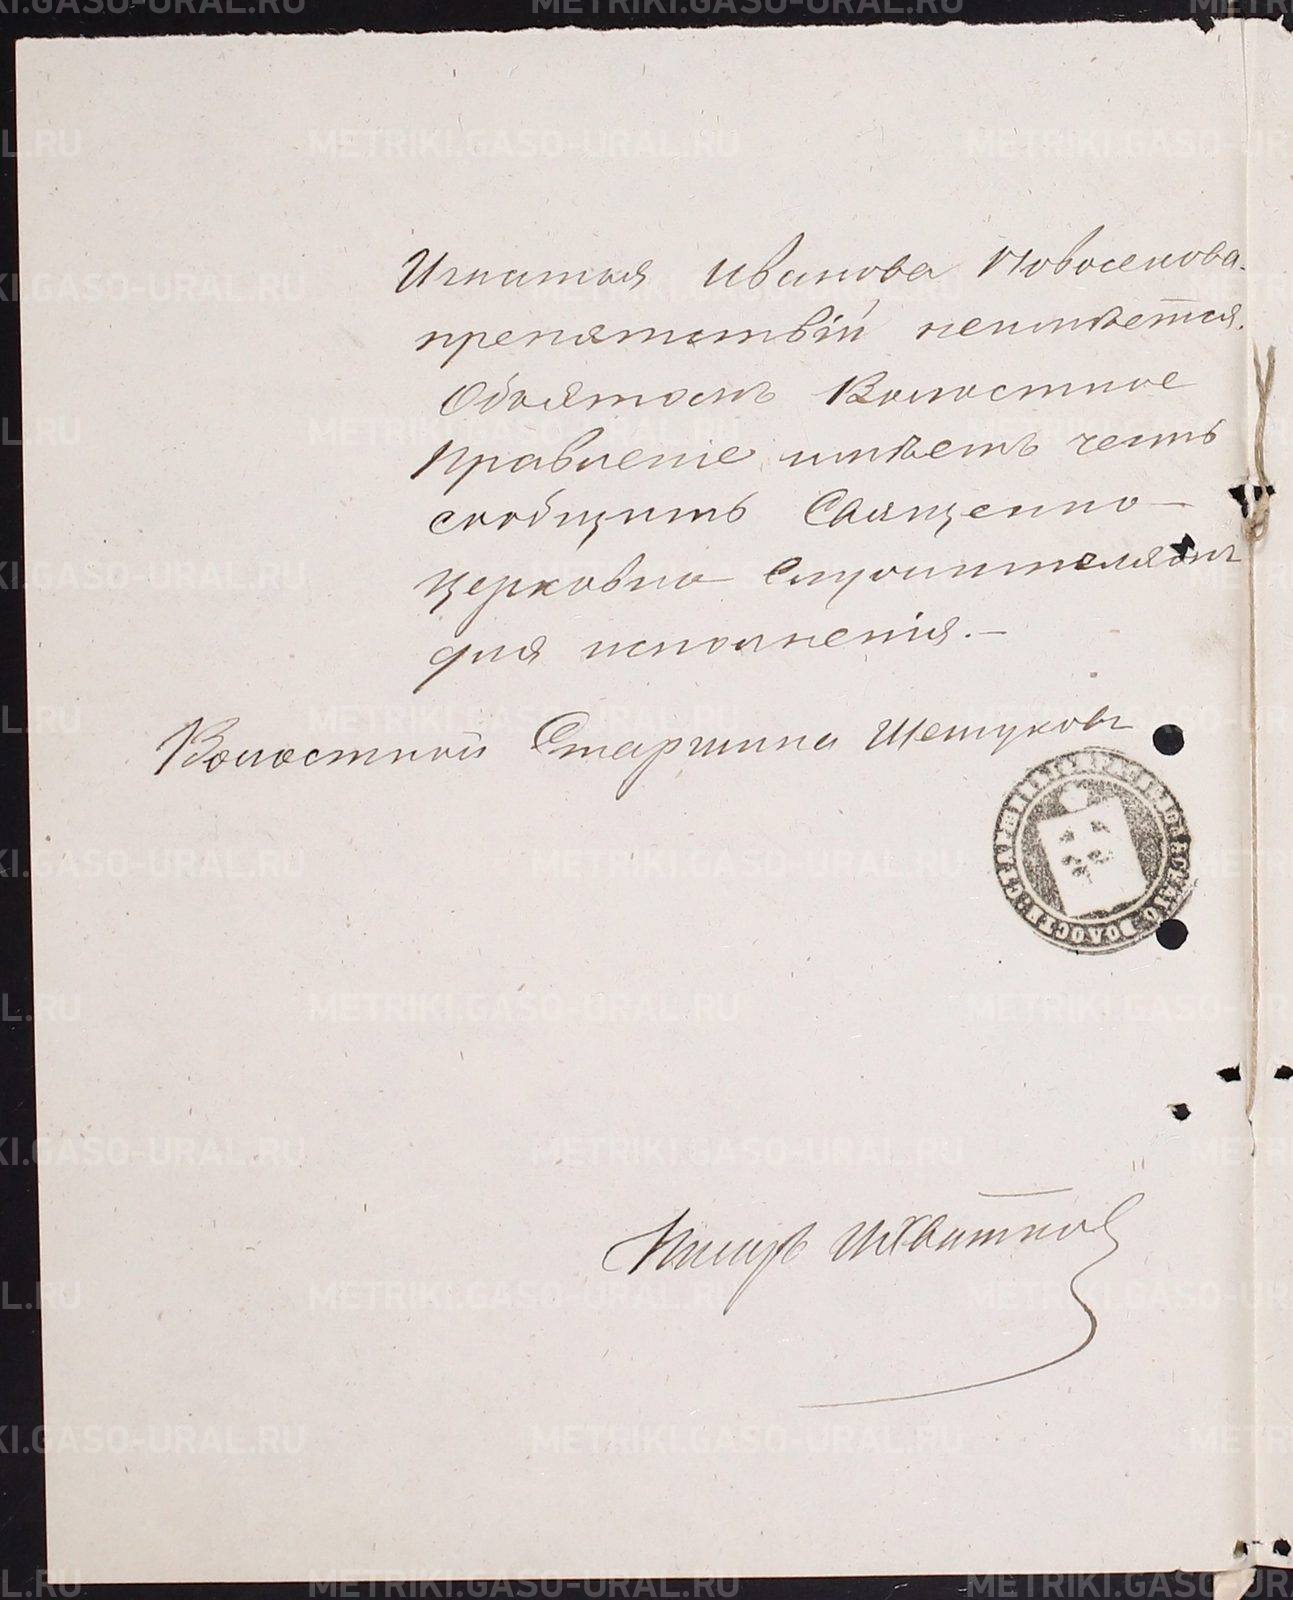 Игнатія Иванова Новоселова.
препятствій неимѣется.
Обэтомъ Волостное
Правленіе имѣетъ честь
сообщить Священно-
церковно-служителямъ
для исполненія.-
Волостной Старшина Шешуковъ
Писарь